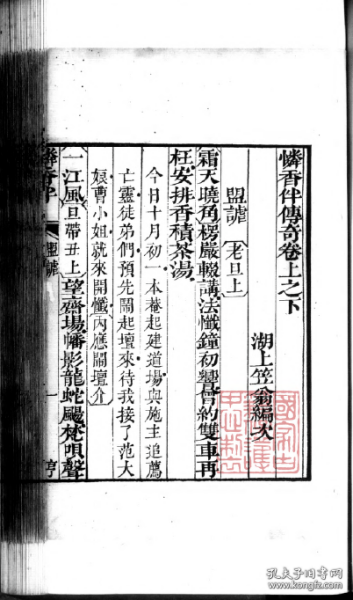 憐香伴傳奇卷上之下
湖上笠翁編次
盟謔 老旦上
霜天曉角楞嚴輟講法懺鐘初響曾約雙車再
枉安排香積茶湯
今日十月初一本菴起建道場與施主追薦
亡靈徒弟們預先鬧起壇來待我接了范大
娘曹小姐就來開懺內應鬧壇介
一江風旦帶丑上望齋場幡影龍蛇颺梵唄聲
憐香伴
盟謔
一
亨
孔夫子旧书网